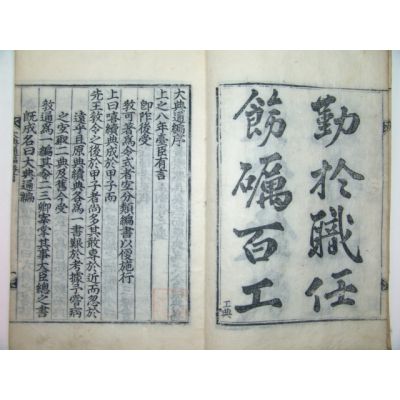 勤於職任
飭礪百工
工典
大典通編序
上之八年臺臣有言
卽阼後受
教可著為令式者宜分類編書以便施行
上曰嘻續典成於甲子而
先王教令之後於甲子者尚多其敢專於近而忽於
遠乎且原典續典各為一書艱於考據予嘗病
之宜取二典及舊今受
教通為一編其令二三卿宰掌其事大臣總之書
既成名曰大典通編